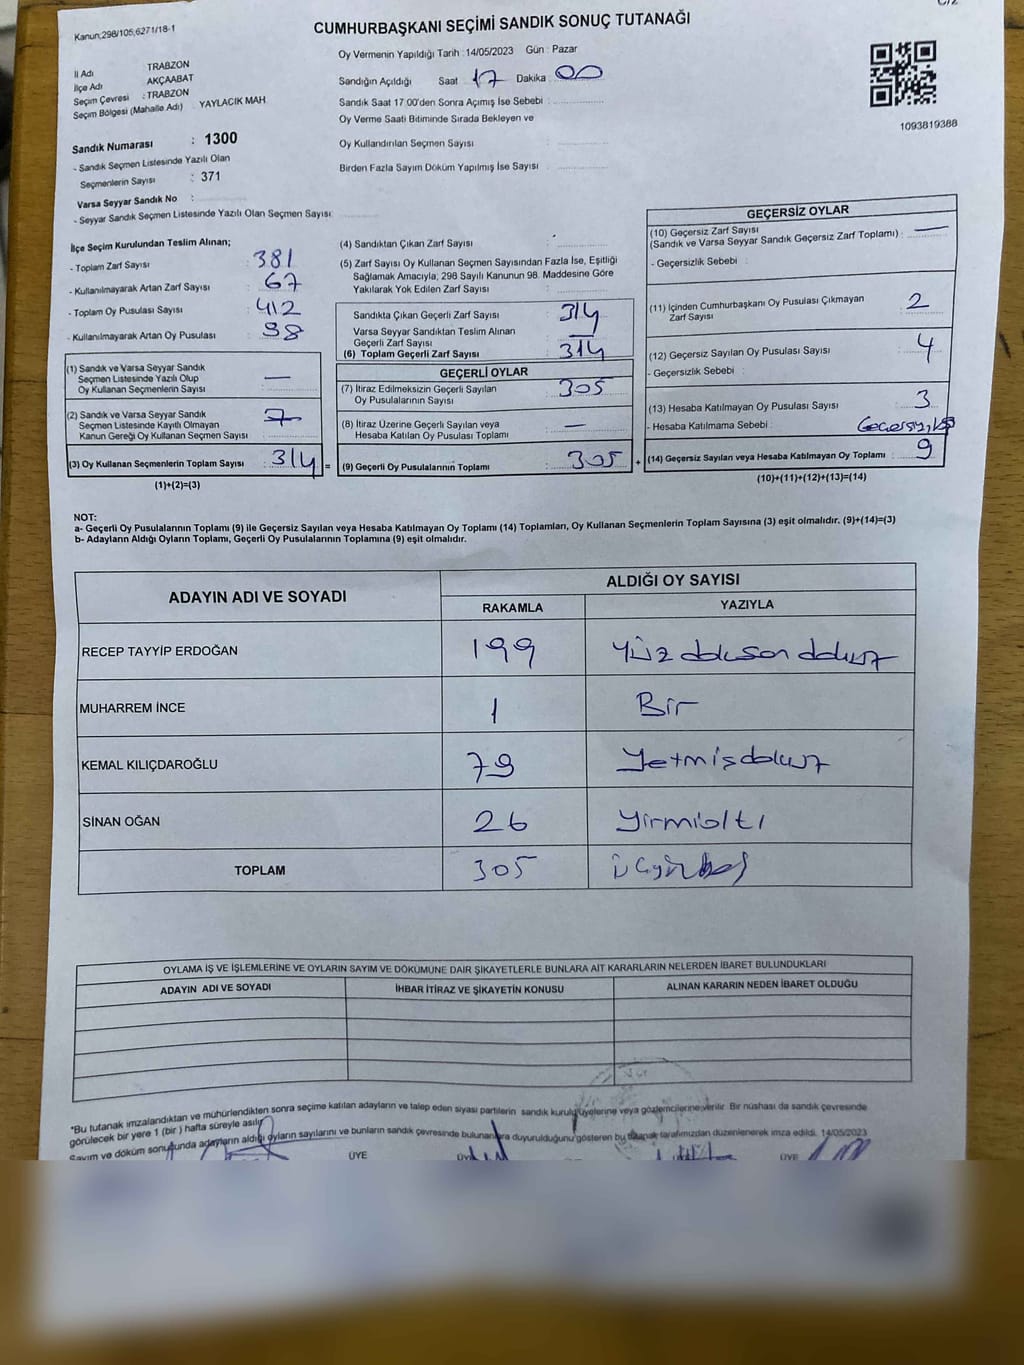 C/2
Kanun;298/105,6271/18-1
CUMHURBAŞKANI SEÇİMİ SANDIK SONUÇ TUTANAĞI
İl Adı TRABZON
İlçe Adı AKÇAABAT
Seçim Çevresi : TRABZON
Seçim Bölgesi (Mahalle Adı) YAYLACIK MAH
Sandık Numarası : 1300
- Sandık Seçmen Listesinde Yazılı Olan
Seçmenlerin Sayısı : 371
Varsa Seyyar Sandık No :
- Seyyar Sandık Seçmen Listesinde Yazılı Olan Seçmen Sayısı:
Oy Vermenin Yapıldığı Tarih : 14/05/2023 Gün : Pazar
Sandığın Açıldığı Saat 17 Dakika : 00
Sandık Saat 17:00'den Sonra Açımış İse Sebebi :
Oy Verme Saati Bitiminde Sırada Bekleyen ve
Oy Kullandırılan Seçmen Sayısı :
Birden Fazla Sayım Döküm Yapılmış İse Sayısı :
1093819388
İlçe Seçim Kurulundan Teslim Alınan;
- Toplam Zarf Sayısı : 381
- Kullanılmayarak Artan Zarf Sayısı : 67
- Toplam Oy Pusulası Sayısı : 412
- Kullanılmayarak Artan Oy Pusulası : 98
(1) Sandık ve Varsa Seyyar Sandık
Seçmen Listesinde Yazılı Olup
Oy Kullanan Seçmenlerin Sayısı : —
(2) Sandık ve Varsa Seyyar Sandık
Seçmen Listesinde Kayıtlı Olmayan
Kanun Gereği Oy Kullanan Seçmen Sayısı : 7
(3) Oy Kullanan Seçmenlerin Toplam Sayısı : 314 =
(1)+(2)=(3)
(4) Sandıktan Çıkan Zarf Sayısı :
(5) Zarf Sayısı Oy Kullanan Seçmen Sayısından Fazla İse, Eşitliği
Sağlamak Amacıyla, 298 Sayılı Kanunun 98. Maddesine Göre
Yakılarak Yok Edilen Zarf Sayısı :
Sandıkta Çıkan Geçerli Zarf Sayısı : 314
Varsa Seyyar Sandıktan Teslim Alınan
Geçerli Zarf Sayısı : —
(6) Toplam Geçerli Zarf Sayısı : 314
GEÇERLİ OYLAR
(7) İtiraz Edilmeksizin Geçerli Sayılan
Oy Pusulalarının Sayısı : 305
(8) İtiraz Üzerine Geçerli Sayılan veya
Hesaba Katılan Oy Pusulası Toplamı : —
(9) Geçerli Oy Pusulalarının Toplamı : 305 +
GEÇERSİZ OYLAR
(10) Geçersiz Zarf Sayısı
(Sandık ve Varsa Seyyar Sandık Geçersiz Zarf Toplamı) : —
- Geçersizlik Sebebi :
(11) İçinden Cumhurbaşkanı Oy Pusulası Çıkmayan
Zarf Sayısı : 2
(12) Geçersiz Sayılan Oy Pusulası Sayısı : 4
- Geçersizlik Sebebi :
(13) Hesaba Katılmayan Oy Pusulası Sayısı : 3
- Hesaba Katılmama Sebebi :
(14) Geçersiz Sayılan veya Hesaba Katılmayan Oy Toplamı : 9
(10)+(11)+(12)+(13)=(14)
NOT:
a- Geçerli Oy Pusulalarının Toplamı (9) ile Geçersiz Sayılan veya Hesaba Katılmayan Oy Toplamı (14) Toplamları, Oy Kullanan Seçmenlerin Toplam Sayısına (3) eşit olmalıdır. (9)+(14)=(3)
b- Adayların Aldığı Oyların Toplamı, Geçerli Oy Pusulalarının Toplamına (9) eşit olmalıdır.
ADAYIN ADI VE SOYADI ALDIĞI OY SAYISI
RAKAMLA YAZIYLA
RECEP TAYYİP ERDOĞAN 199 Yüz doksan dokuz
MUHARREM İNCE 1 Bir
KEMAL KILIÇDAROĞLU 79 Yetmişdokuz
SİNAN OĞAN 26 Yirmialtı
TOPLAM 305 üçyüzbeş
OYLAMA İŞ VE İŞLEMLERİNE VE OYLARIN SAYIM VE DÖKÜMÜNE DAİR ŞİKAYETLERLE BUNLARA AİT KARARLARIN NELERDEN İBARET BULUNDUKLARI
ADAYIN ADI VE SOYADI İHBAR İTİRAZ VE ŞİKAYETİN KONUSU ALINAN KARARIN NEDEN İBARET OLDUĞU
*Bu tutanak imzalandıktan ve mühürlendikten sonra seçime katılan adayların ve talep eden siyasi partilerin sandık kurulu üyelerine veya gözlemcilerine verilir. Bir nüshası da sandık çevresinde
görülecek bir yere 1 (bir) hafta süreyle asılır.
Sayım ve döküm sonucunda adayların aldığı oyların sayılarını ve bunların sandık çevresinde bulunanlara duyurulduğunu gösteren bu tutanak tarafımızdan düzenlenerek imza edildi. 14/05/2023
ÜYE ÜYE ÜYE